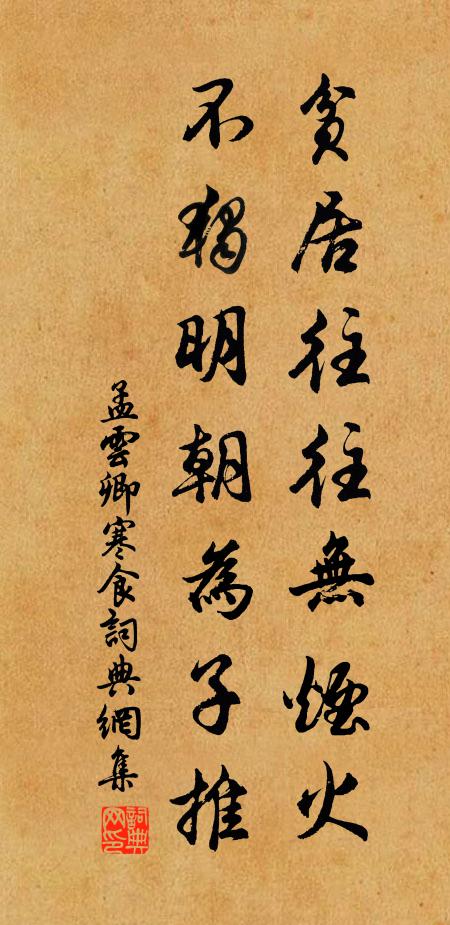 貧居往往無煙火
不獨明朝為子推
孟雲卿寒食詞典網集
詞典网印